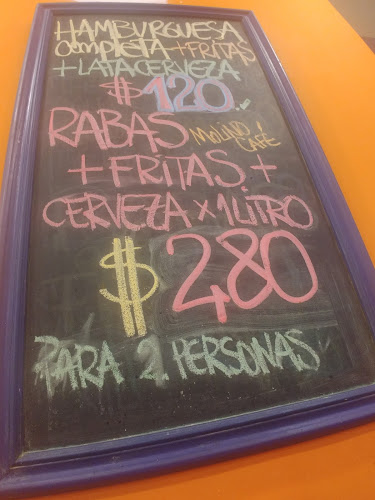 HAMBURGUESA
COMPLETA + FRITAS
+ LATA CERVEZA
$ 120.-
RABAS MOLINO CAFE !
+ FRITAS +
CERVEZA x 1 LITRO
$ 280
PARA 2 PERSONAS